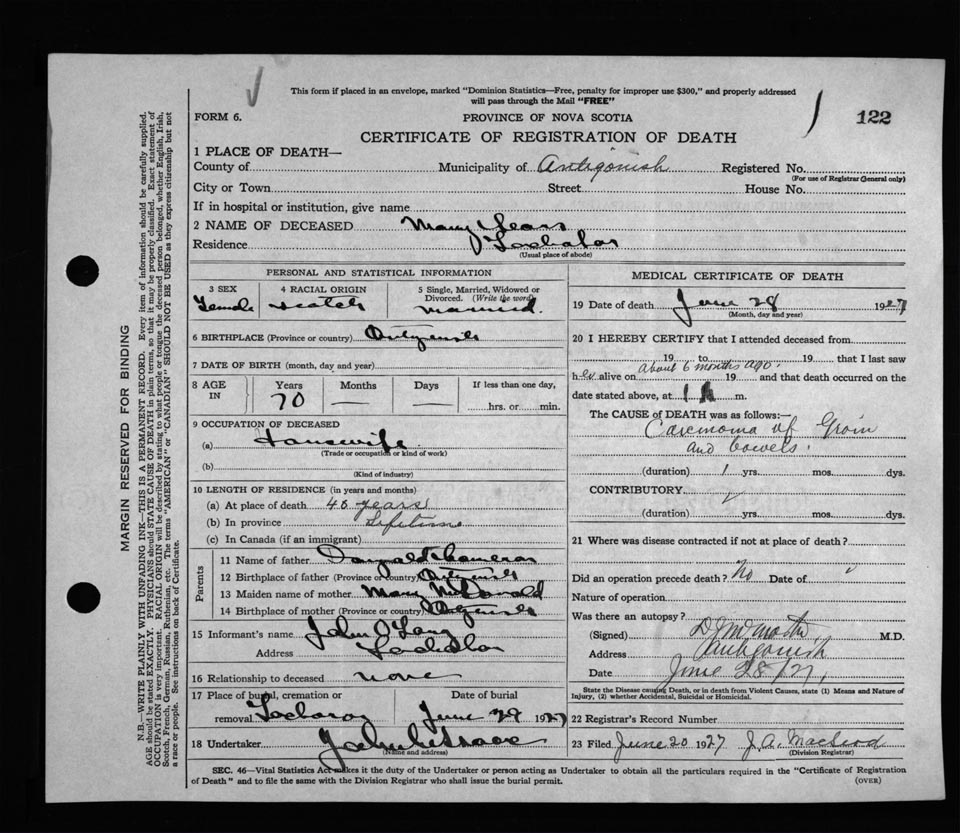 This form if placed in an envelope, marked "Dominion Statistics—Free, penalty for improper use $300," and properly addressed
will pass through the Mail "FREE"
FORM 6.
PROVINCE OF NOVA SCOTIA
122
CERTIFICATE OF REGISTRATION OF DEATH
1 PLACE OF DEATH—
County of Municipality of Antigonish Registered No.
(For use of Registrar General only)
City or Town Street House No.
If in hospital or institution, give name
2 NAME OF DECEASED Mary
Residence Lochaber
(Usual place of abode)
PERSONAL AND STATISTICAL INFORMATION
3 SEX Female
4 RACIAL ORIGIN Scotch
5 Single, Married, Widowed or Divorced. (Write the word) Married.
6 BIRTHPLACE (Province or country) Antigonish
7 DATE OF BIRTH (month, day and year)
8 AGE IN Years Months Days If less than one day,
70 — — hrs. or min.
9 OCCUPATION OF DECEASED
(a) Housewife
(Trade or occupation or kind of work)
(b)
(Kind of industry)
10 LENGTH OF RESIDENCE (in years and months)
(a) At place of death 40 years
(b) In province Lifetime
(c) In Canada (if an immigrant)
Parents
11 Name of father Cameron
12 Birthplace of father (Province or country) Antigonish
13 Maiden name of mother Mary McDonald
14 Birthplace of mother (Province or country) Antigonish
15 Informant's name John J
Address Lochaber
16 Relationship to deceased none
17 Place of burial, cremation or removal Date of burial
Lochaber June 29 1927
18 Undertaker John
(Name and address)
MEDICAL CERTIFICATE OF DEATH
19 Date of death June 28 1927
(Month, day and year)
20 I HEREBY CERTIFY that I attended deceased from
19 to 19 that I last saw
her alive on about 6 months ago. 19 and that death occurred on the
date stated above, at 1 m.
The CAUSE OF DEATH was as follows:—
Carcinoma of Groin
and bowels.
(duration) 1 yrs. mos. dys.
CONTRIBUTORY
(duration) yrs. mos. dys.
21 Where was disease contracted if not at place of death?
Did an operation precede death? No Date of "
Nature of operation
Was there an autopsy?
(Signed) M.D.
Address Antigonish
Date June 28/27
State the Disease causing Death, or in death from Violent Causes, state (1) Means and Nature of
Injury, (2) whether Accidental, Suicidal or Homicidal.
22 Registrar's Record Number
23 Filed June 1927 J. A. MacLeod
(Division Registrar)
SEC. 46—Vital Statistics Act makes it the duty of the Undertaker or person acting as Undertaker to obtain all the particulars required in the "Certificate of Registration
of Death" and to file the same with the Division Registrar who shall issue the burial permit.
(OVER)
MARGIN RESERVED FOR BINDING
N.B.—WRITE PLAINLY WITH UNFADING INK—THIS IS A PERMANENT RECORD. Every item of information should be carefully supplied.
AGE should be stated EXACTLY. PHYSICIANS should STATE CAUSE OF DEATH in plain terms, so that it may be properly classified. Exact statement of
OCCUPATION is very important. RACIAL ORIGIN will be described by stating to what people or tongue the deceased person belonged, whether English, Irish,
Scotch, French, German, Russian, Ruthenian, etc. The terms "AMERICAN" or "CANADIAN" SHOULD NOT BE USED as they express citizenship but not
a race or people. See instructions on back of Certificate.